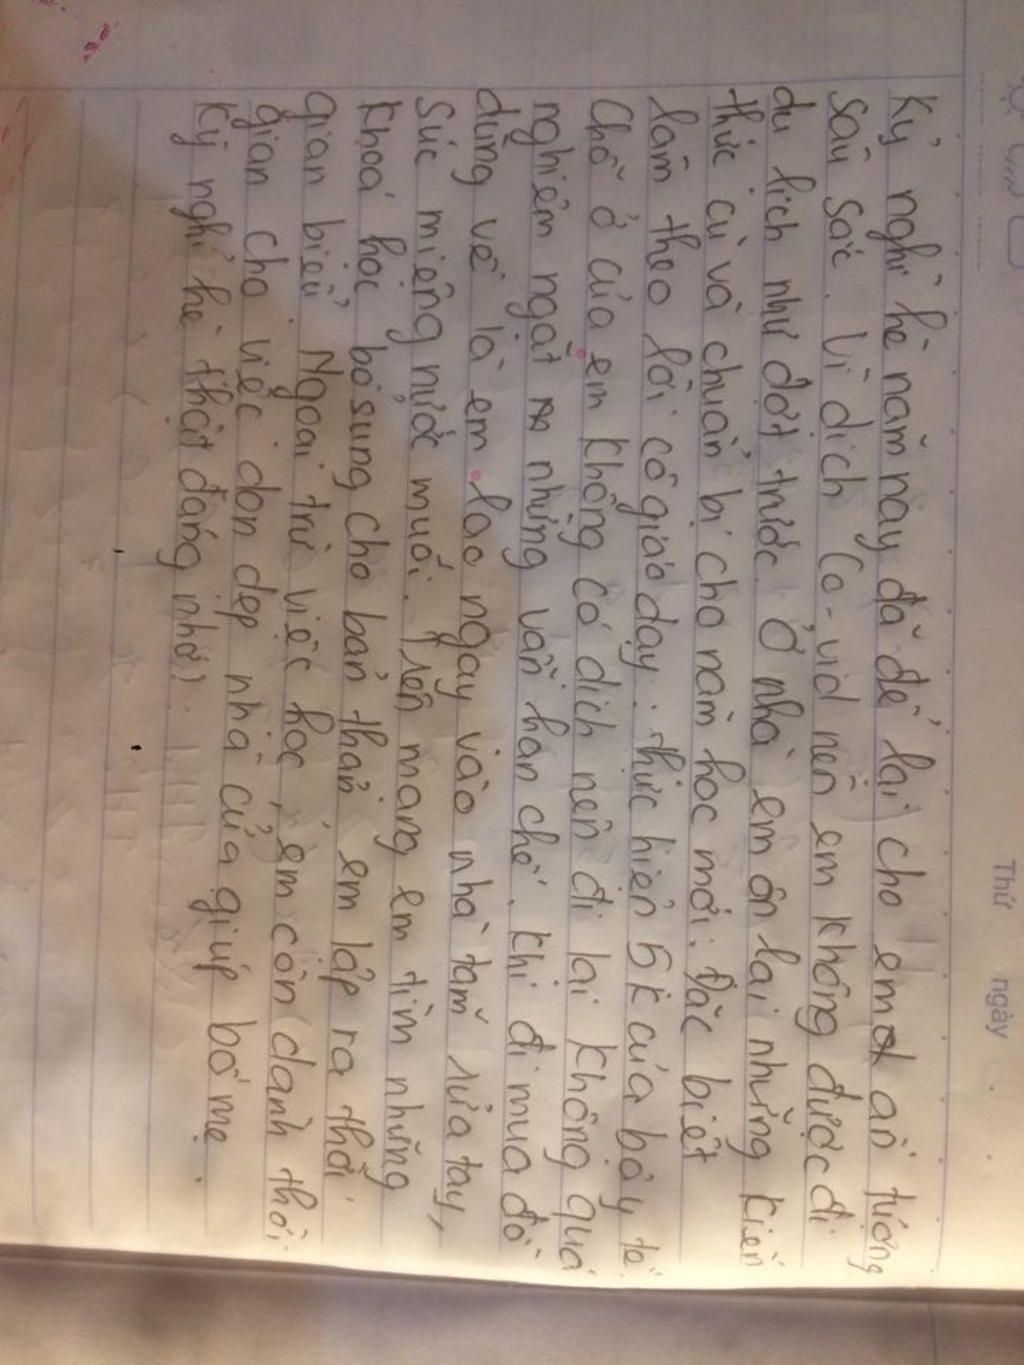 Thứ ngày
Kỳ nghỉ hè năm nay đã để lại cho em ấn tượng
sâu sắc. Vì dịch Co-vid nên em không được đi
du lịch như đợt trước. Ở nhà em ôn lại những kiến
thức cũ và chuẩn bị cho năm học mới. Đặc biệt
làm theo lời cô giáo dạy. thực hiện 5K của bộ y tế.
Chỗ ở của em không có dịch nên đi lại không quá
nghiêm ngặt nhưng vẫn hạn chế. khi đi mua đồ
dùng về là em lao ngay vào nhà tắm rửa tay,
súc miệng nước muối. Trên mạng em tìm những
khoá học bổ sung cho bản thân em lập ra thời
gian biểu. Ngoài trừ việc học, em còn dành thời
gian cho việc dọn dẹp nhà cửa giúp bố mẹ.
Kỳ nghỉ hè thật đáng nhớ!